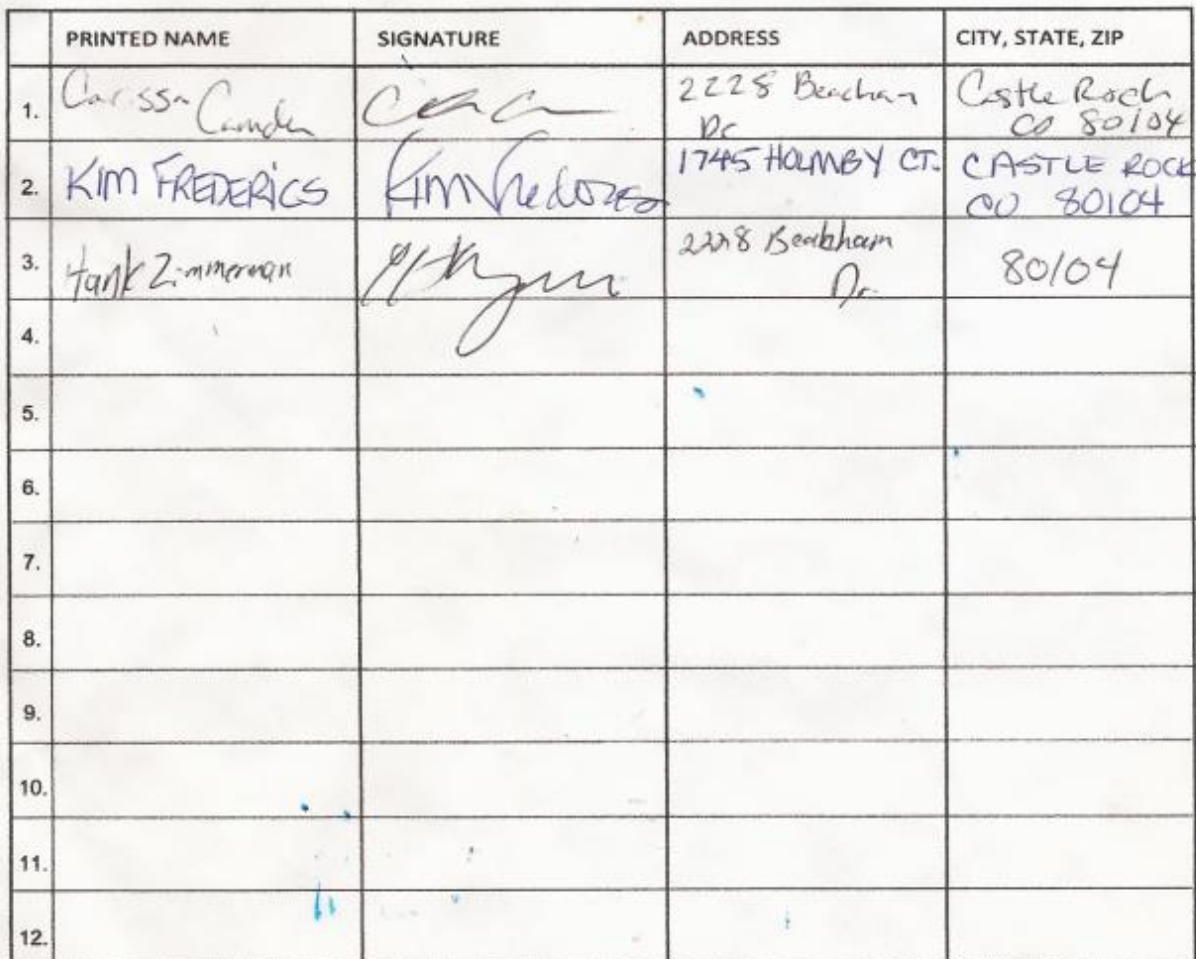 PRINTED NAME SIGNATURE ADDRESS CITY, STATE, ZIP
1. Carissa Camden 2228 Beacham Dr Castle Rock CO 80104
2. KIM FREDERICS Kim 1745 HOLMBY CT. CASTLE ROCK CO 80104
3. Hank Zimmerman 2228 Beabham Dr. 80104
4.
5.
6.
7.
8.
9.
10.
11.
12.